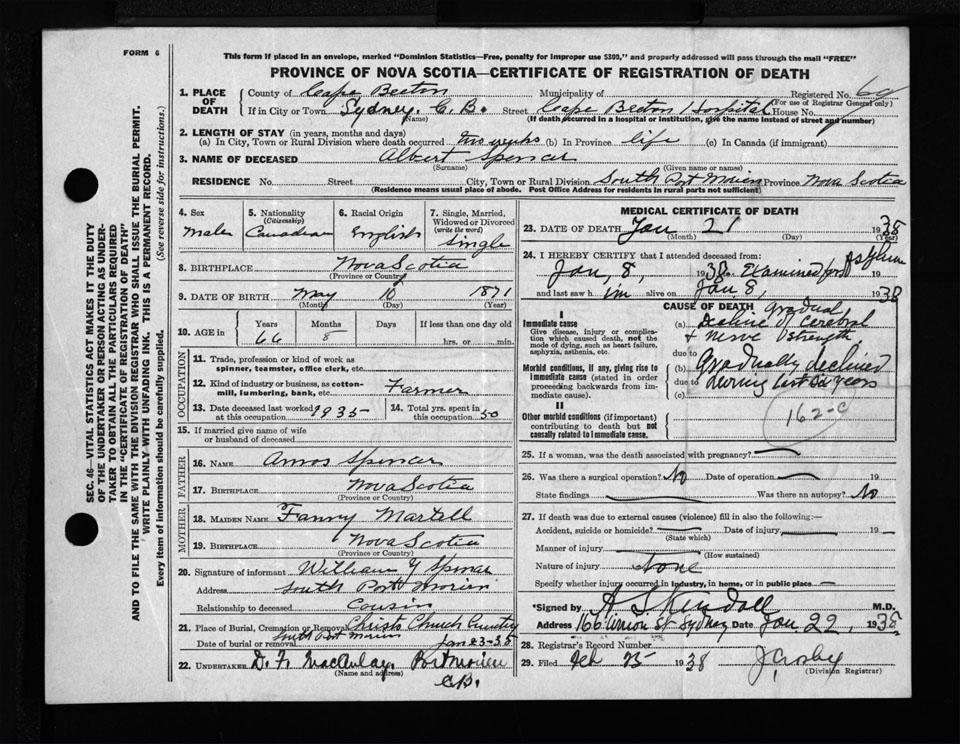 FORM 6
This form if placed in an envelope, marked "Dominion Statistics—Free, penalty for improper use $300," and properly addressed will pass through the mail "FREE"
PROVINCE OF NOVA SCOTIA—CERTIFICATE OF REGISTRATION OF DEATH
1. PLACE OF DEATH
County of Cape Breton Municipality of Registered No.
(For use of Registrar General only)
If in City or Town Sydney, C. B. Street Cape Breton Hospital House No.
(Name) (If death occurred in a hospital or institution, give the name instead of street and number)
2. LENGTH OF STAY (in years, months and days)
(a) In City, Town or Rural Division where death occurred two weeks (b) In Province life (c) In Canada (if immigrant)
3. NAME OF DECEASED Albert Spencer
(Surname) (Given name or names)
RESIDENCE No. Street City, Town or Rural Division South Port Morien Province Nova Scotia
(Residence means usual place of abode. Post Office Address for residents in rural parts not sufficient)
4. Sex Male
5. Nationality (Citizenship) Canadian
6. Racial Origin English
7. Single, Married, Widowed or Divorced (write the word) Single
8. BIRTHPLACE Nova Scotia
(Province or Country)
9. DATE OF BIRTH May 10 1871
(Month) (Day) (Year)
10. AGE in Years Months Days If less than one day
66 8 hrs. or min.
OCCUPATION
11. Trade, profession or kind of work as spinner, teamster, office clerk, etc.
12. Kind of industry or business, as cotton-mill, lumbering, bank, etc. Farmer
13. Date deceased last worked at this occupation 1935
14. Total yrs. spent in this occupation 50
15. If married give name of wife or husband of deceased
FATHER
16. NAME Amos Spencer
17. BIRTHPLACE Nova Scotia
(Province or Country)
MOTHER
18. MAIDEN NAME Fanny Martell
19. BIRTHPLACE Nova Scotia
(Province or Country)
20. Signature of informant William Y Spencer
Address South Port Morien
Relationship to deceased Cousin
21. Place of Burial, Cremation or Removal Christs Church Cemetery
South Port Morien
Date of burial or removal Jan 23-38
22. UNDERTAKER D. F. MacAulay, Port Morien
(Name and address)
C.B.
MEDICAL CERTIFICATE OF DEATH
23. DATE OF DEATH Jan 21 1938
(Month) (Day) (Year)
24. I HEREBY CERTIFY that I attended deceased from:
Jan, 8, 1938. Examined for Asylum 19
and last saw him alive on Jan 8, 1938
CAUSE OF DEATH
I
Immediate cause
Give disease, injury or complication which caused death, not the mode of dying, such as heart failure, asphyxia, asthenia, etc.
(a) Gradual decline of Cerebral + nerve strength
due to
Morbid conditions, if any, giving rise to immediate cause (stated in order proceeding backwards from immediate cause).
(b) Gradually declined
due to during last
(c) years
II
Other morbid conditions (if important) contributing to death but not causally related to immediate cause.
162-c
25. If a woman, was the death associated with pregnancy?
26. Was there a surgical operation? No Date of operation 19
State findings Was there an autopsy? No
27. If death was due to external causes (violence) fill in also the following:—
Accident, suicide or homicide? Date of injury 19
(State which)
Manner of injury
(How sustained)
Nature of injury None
Specify whether injury occurred in industry, in home, or in public place
*Signed by A S Kendall M.D.
Address 166 Union St Sydney Date Jan 22, 1938
28. Registrar's Record Number
29. Filed Feb 25 1938
(Division Registrar)
SEC. 46—VITAL STATISTICS ACT MAKES IT THE DUTY
OF THE UNDERTAKER OR PERSON ACTING AS UNDER-
TAKER TO OBTAIN ALL THE PARTICULARS REQUIRED
IN THE "CERTIFICATE OF REGISTRATION OF DEATH"
AND TO FILE THE SAME WITH THE DIVISION REGISTRAR WHO SHALL ISSUE THE BURIAL PERMIT.
WRITE PLAINLY WITH UNFADING INK. THIS IS A PERMANENT RECORD.
Every item of information should be carefully supplied. (See reverse side for instructions.)